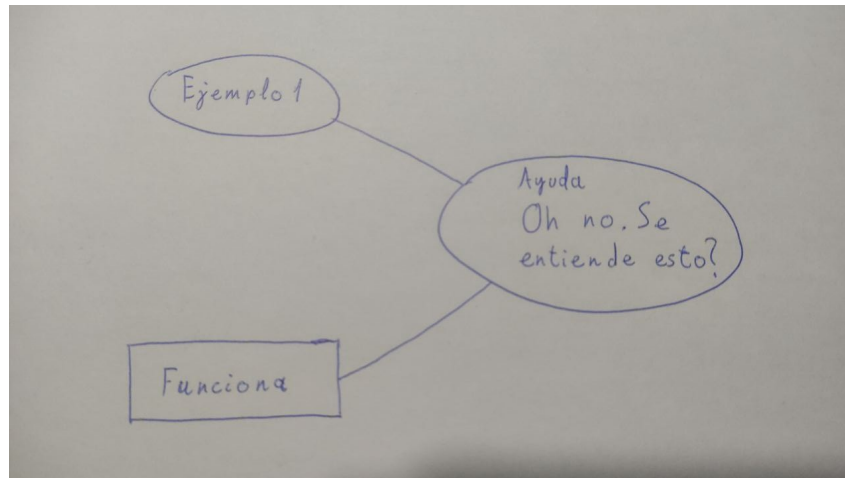 Ejemplo 1
Ayuda
Oh no. Se
entiende esto?
Funciona